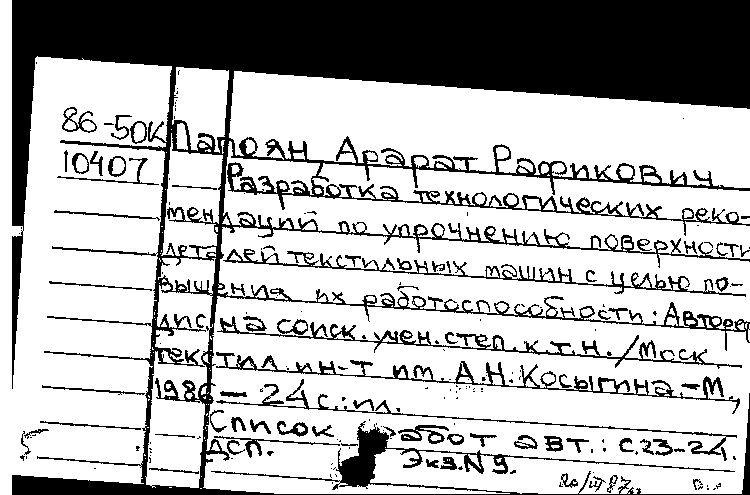 86-50К Папоян, Арарат Рафикович.
10407 Разработка технологических реко-
мендаций по упрочнению поверхности
деталей текстильных машин с целью по-
вышения их работоспособности: Автореф
дис. на соиск. учен. степ. к.т.н. / Моск.
текстил. ин-т им. А.Н. Косыгина. - М.,
1986 - 24 с.: ил.
Список работ авт.: с. 23-24.
ДСП. Экз. N 9.
5